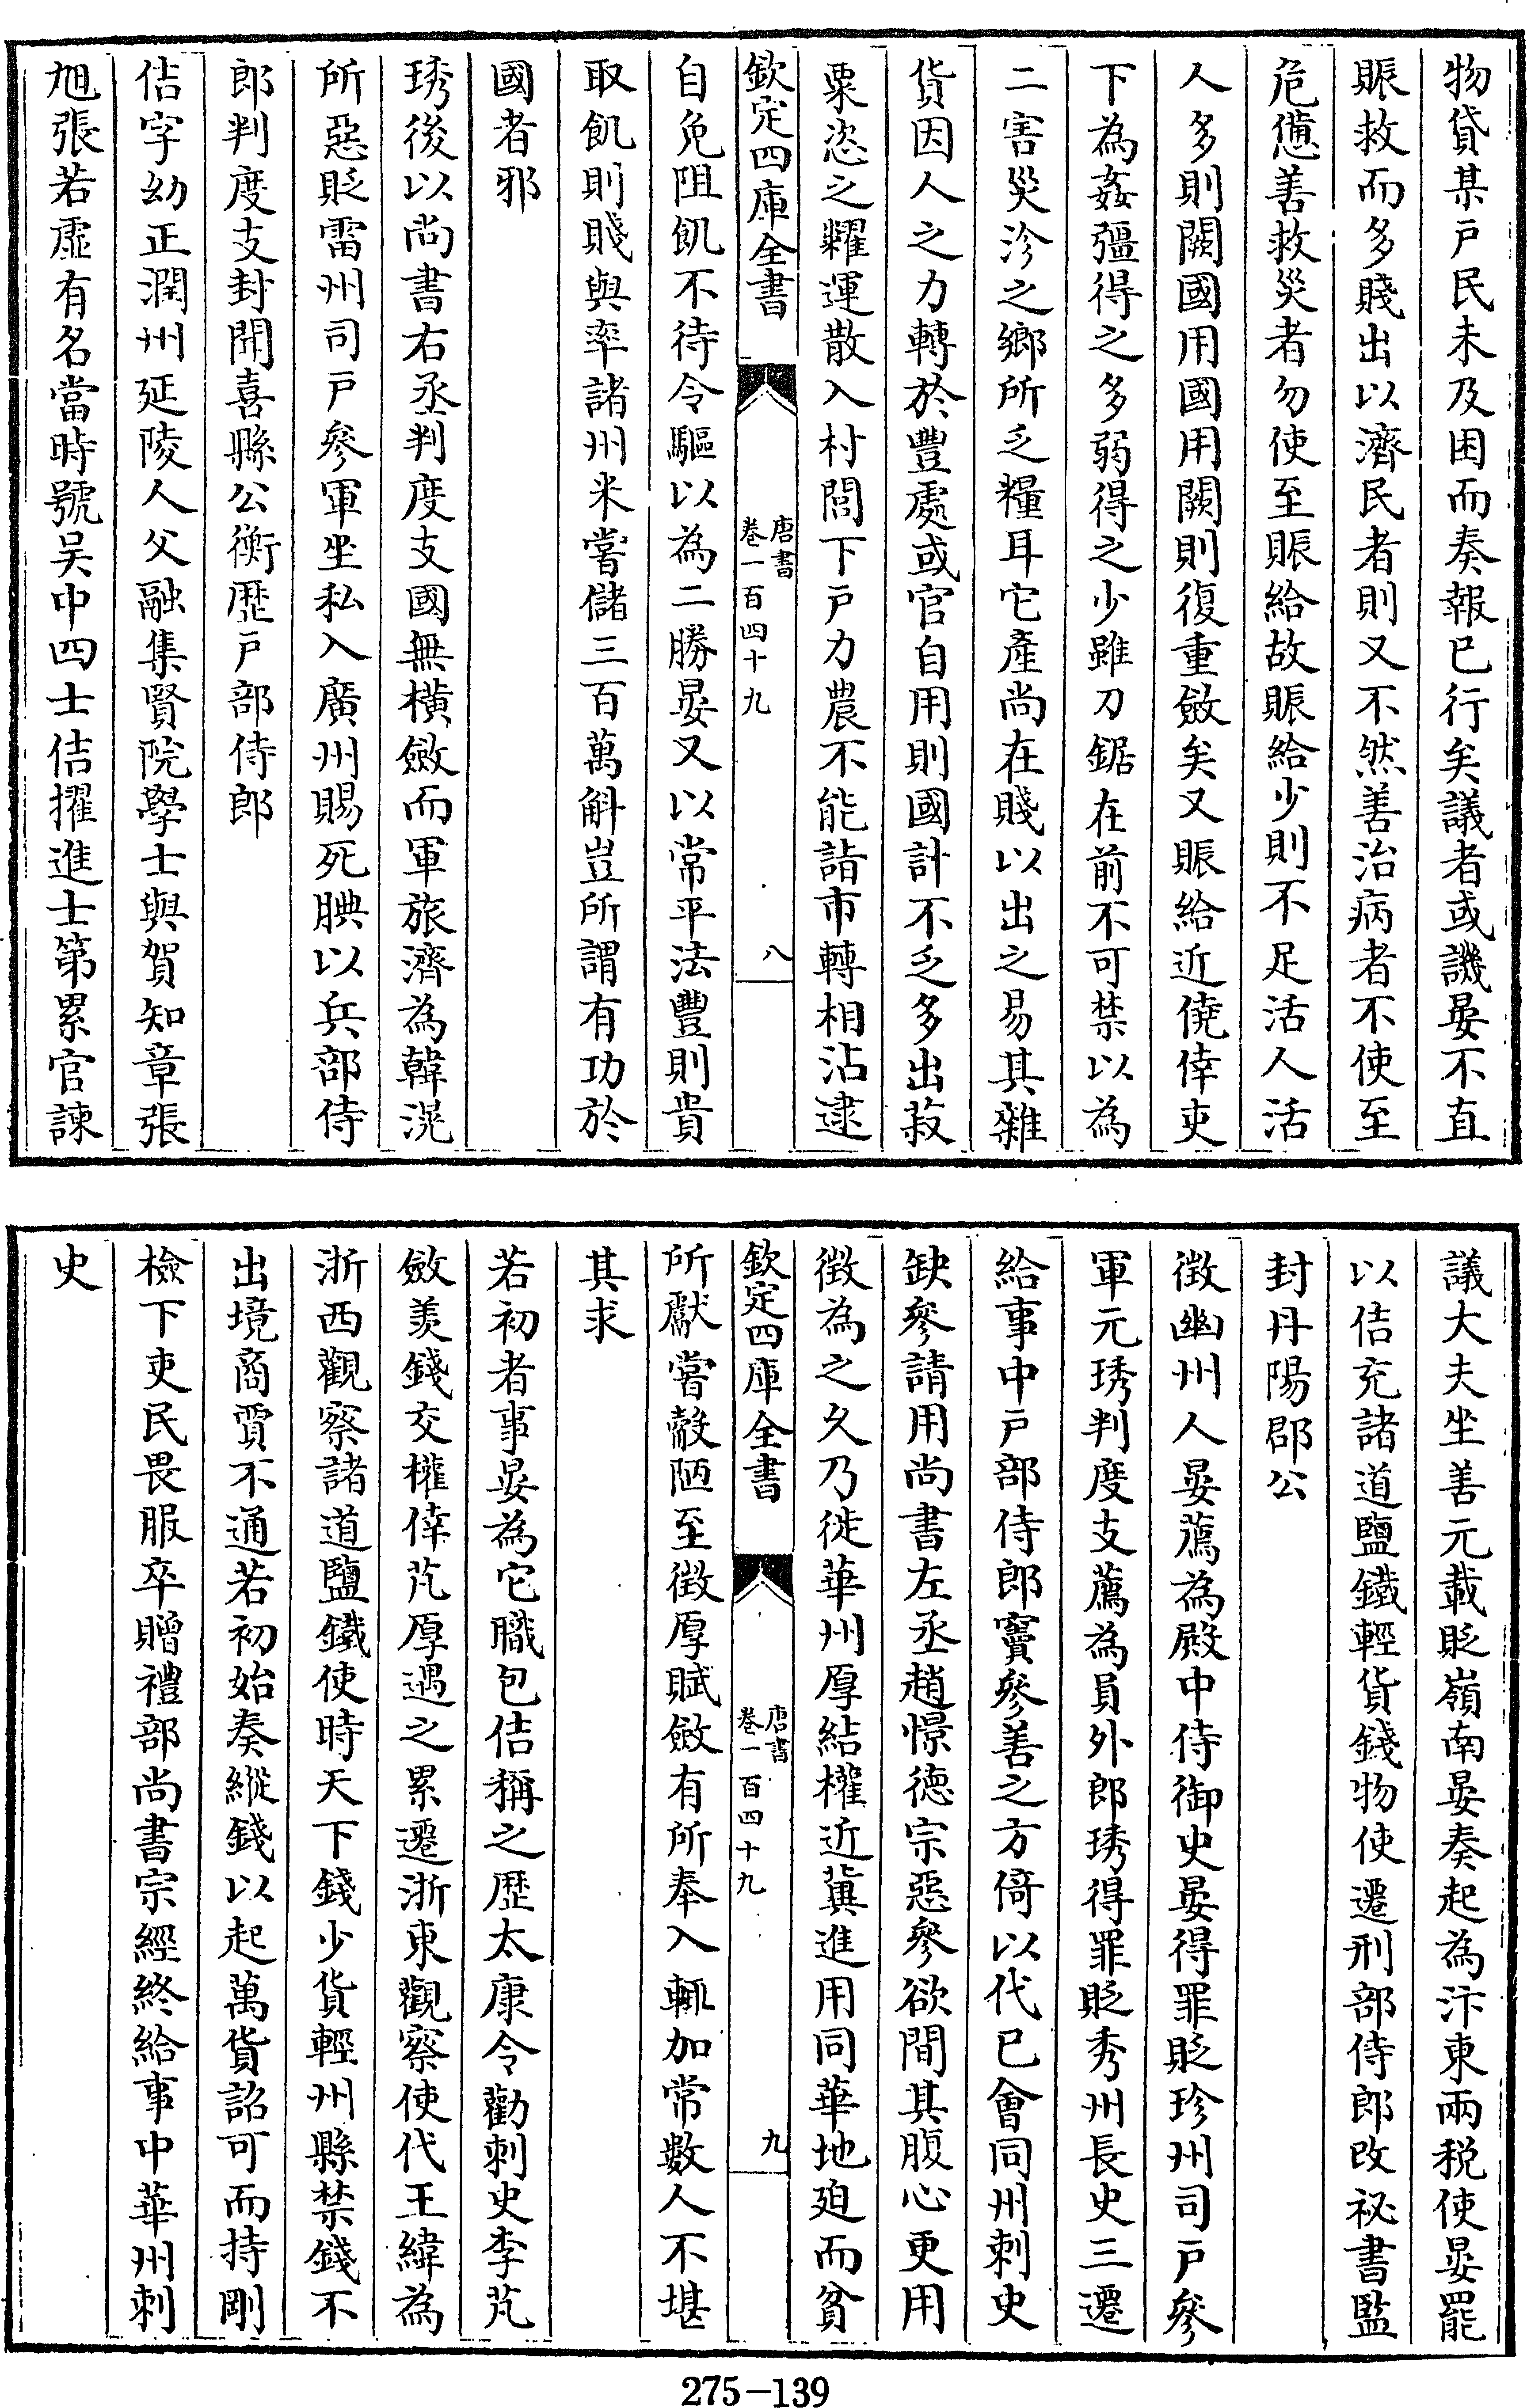 物貸某戸民未及困而奏報已行矣議者或譏晏不直
賑救而多賤出以濟民者則又不然善治病者不使至
危憊善救災者勿使至賑給故賑給少則不足活人活
人多則闕國用國用闕則復重斂矣又賑給近僥倖吏
下為姦彊得之多弱得之少雖刀鋸在前不可禁以為
二害災沴之鄉所乏糧耳它產尚在賤以出之易其雜
貨因人之力轉於豐處或官自用則國計不乏多出菽
粟恣之糶運散入村閭下戸力農不能詣市轉相沾逮
欽定四庫全書
唐書
卷一百四十九
八
自免阻飢不待令驅以為二勝晏又以常平法豐則貴
取飢則賤與率諸州米嘗儲三百萬斛豈所謂有功於
國者邪
琇後以尚書右丞判度支國無橫斂而軍旅濟為韓滉
所惡貶雷州司戸參軍坐私入廣州賜死腆以兵部侍
郎判度支封聞喜縣公衡歴戸部侍郎
佶字幼正潤州延陵人父融集賢院學士與賀知章張
旭張若虛有名當時號吳中四士佶擢進士第累官諫
議大夫坐善元載貶嶺南晏奏起為汴東兩税使晏罷
以佶充諸道鹽鐵輕貨錢物使遷刑部侍郎改祕書監
封丹陽郡公
徴幽州人晏薦為殿中侍御史晏得罪貶珍州司戸參
軍元琇判度支薦為員外郎琇得罪貶秀州長史三遷
給事中戸部侍郎竇參善之方倚以代已會同州刺史
缺參請用尚書左丞趙憬德宗惡參欲間其腹心更用
徴為之久乃徙華州厚結權近冀進用同華地廹而貧
欽定四庫全書
唐書
卷一百四十九
九
所獻嘗觳陋至徴厚賦斂有所奉入輒加常數人不堪
其求
若初者事晏為它職包佶稱之歴太康令勸刺史李芃
斂羡錢交權倖芃厚遇之累遷浙東觀察使代王緯為
浙西觀察諸道鹽鐵使時天下錢少貨輕州縣禁錢不
出境商賈不通若初始奏縱錢以起萬貨詔可而持剛
檢下吏民畏服卒贈禮部尚書宗經終給事中華州刺
史
275-139